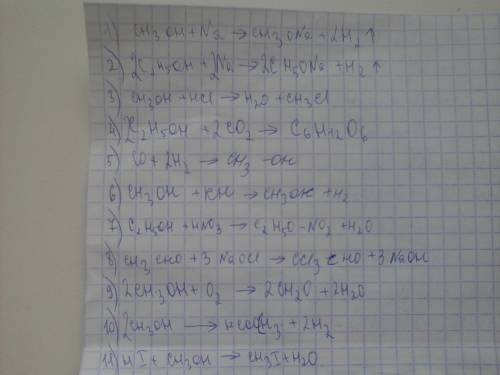 1) CH3OH + Na → CH3ONa + 2H2↑
2) 2C2H5OH + 2Na → 2C2H5ONa + H2↑
3) CH3OH + HCl → H2O + CH3Cl
4) 2C2H5OH + 2CO2 → C6H12O6
5) CO + 2H2 → CH3-OH
6) CH3OH + KH → CH3OK + H2
7) C2H5OH + HNO3 → C2H5O-NO2 + H2O
8) CH3CHO + 3NaOCl → CCl3-CHO + 3NaOH
9) 2CH3OH + O2 → 2CH2O + 2H2O
10) 2CH3OH → HCOOCH3 + 2H2
11) HI + CH3OH → CH3I + H2O